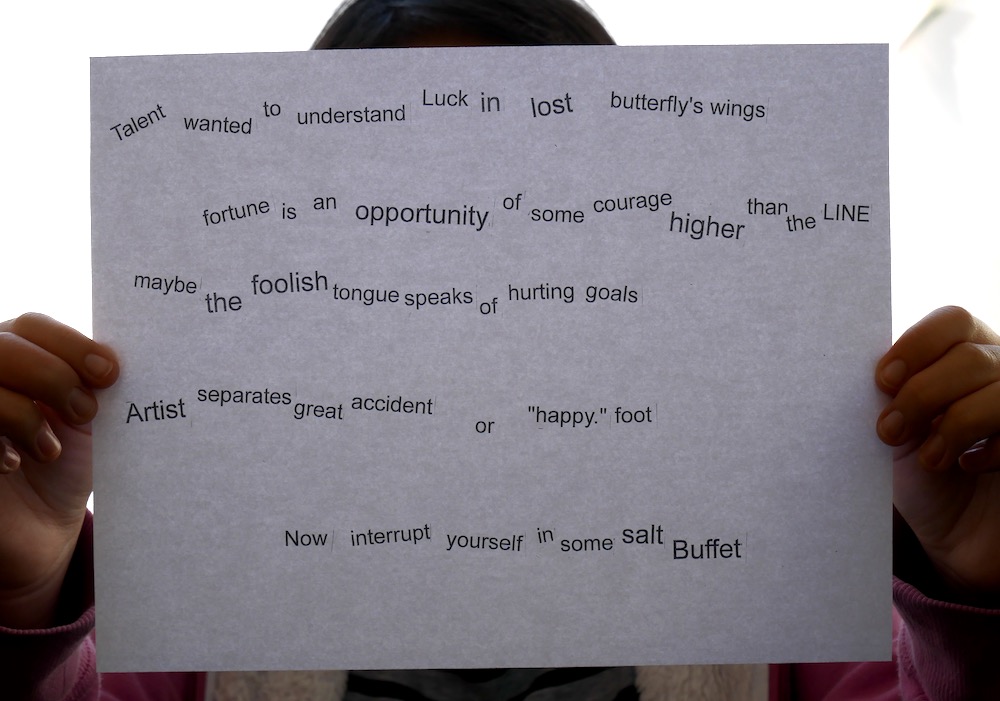 Talent wanted to understand Luck in lost butterfly's wings
fortune is an opportunity of some courage higher than the LINE
maybe the foolish tongue speaks of hurting goals
Artist separates great accident or "happy." foot
Now interrupt yourself in some salt Buffet